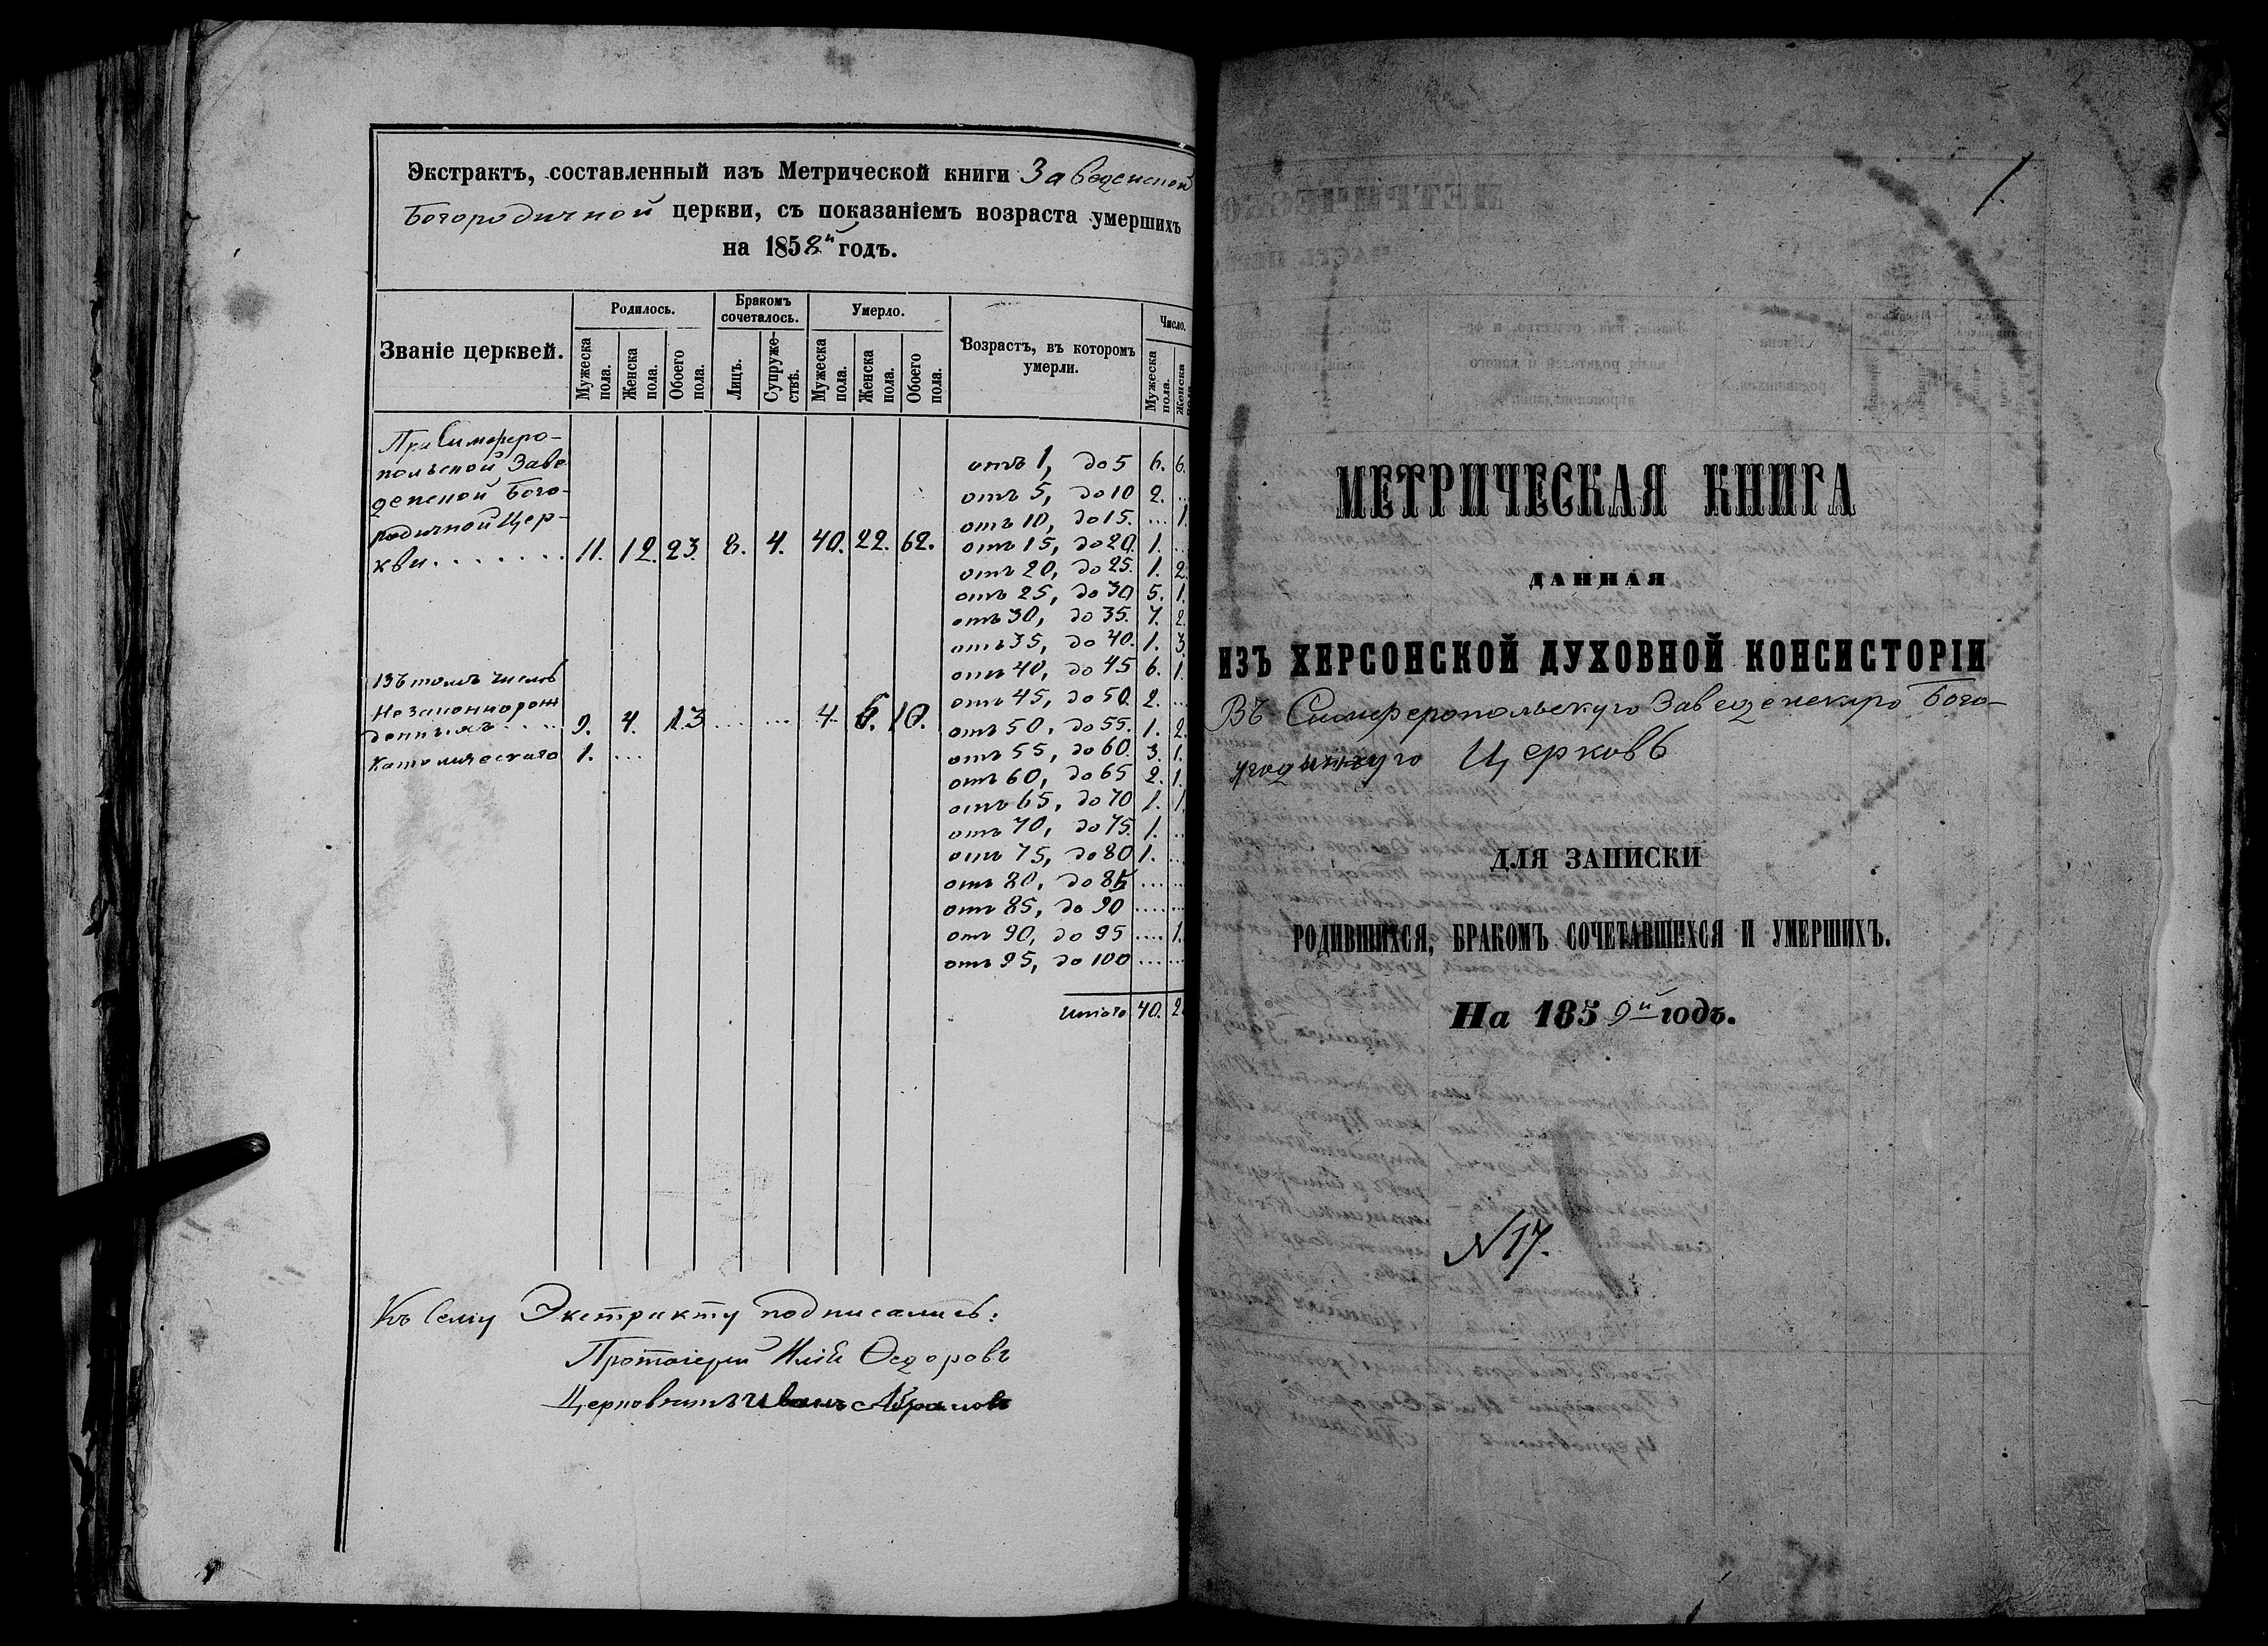 Экстрактъ, составленный изъ Метрической книги Заведенской
Богородичной церкви, съ показаніемъ возраста умершихъ
на 1858й годъ.
Званіе церквей.
Родилось.
Бракомъ сочеталось.
Умерло.
Возрастъ, въ которомъ умерли.
Число.
Мужеска пола.
Женска пола.
Обоего пола.
Лицъ.
Супружествъ.
Мужеска пола.
Женска пола.
Обоего пола.
Мужеска пола.
Женска пола.
При Симферо-
польской Заве
денской Бого-
родичной Цер-
кви . . . . . . . 11. 12. 23. 8. 4. 40. 22. 62.
Въ томъ числѣ
Незаконнорож
денныхъ . . . . 9. 4. 13 ... ... 4. 6. 10.
Католическаго 1. ...
отъ 1, до 5 6. 6.
отъ 5, до 10 2. ...
отъ 10, до 15. ... 1.
отъ 15, до 20. 1. ...
отъ 20, до 25. 1. 2.
отъ 25, до 30 5. 1.
отъ 30, до 35. 7. 2.
отъ 35, до 40. 1. 3.
отъ 40, до 45 6. 1.
отъ 45, до 50. 2. ...
отъ 50, до 55. 1. 2.
отъ 55, до 60. 3. 1.
отъ 60, до 65 2. 1.
отъ 65, до 70 1. 1.
отъ 70, до 75. 1. ...
отъ 75, до 80 1. ...
отъ 80, до 85 ... ...
отъ 85, до 90 .... ...
отъ 90, до 95 .... 1.
отъ 95, до 100 .... ...
Итого 40. 2
Къ сему Экстракту подписались:
Протоіерей Илія Ѳедоровъ
Церковникъ Иванъ Абрамовъ
1.
МЕТРИЧЕСКАЯ КНИГА
ДАННАЯ
ИЗЪ ХЕРСОНСКОЙ ДУХОВНОЙ КОНСИСТОРІИ
Въ Симферопольскую Заведенскую Бого-
родичную Церковь
ДЛЯ ЗАПИСКИ
РОДИВШИХСЯ, БРАКОМЪ СОЧЕТАВШИХСЯ И УМЕРШИХЪ.
На 1859й годъ.
N 17.